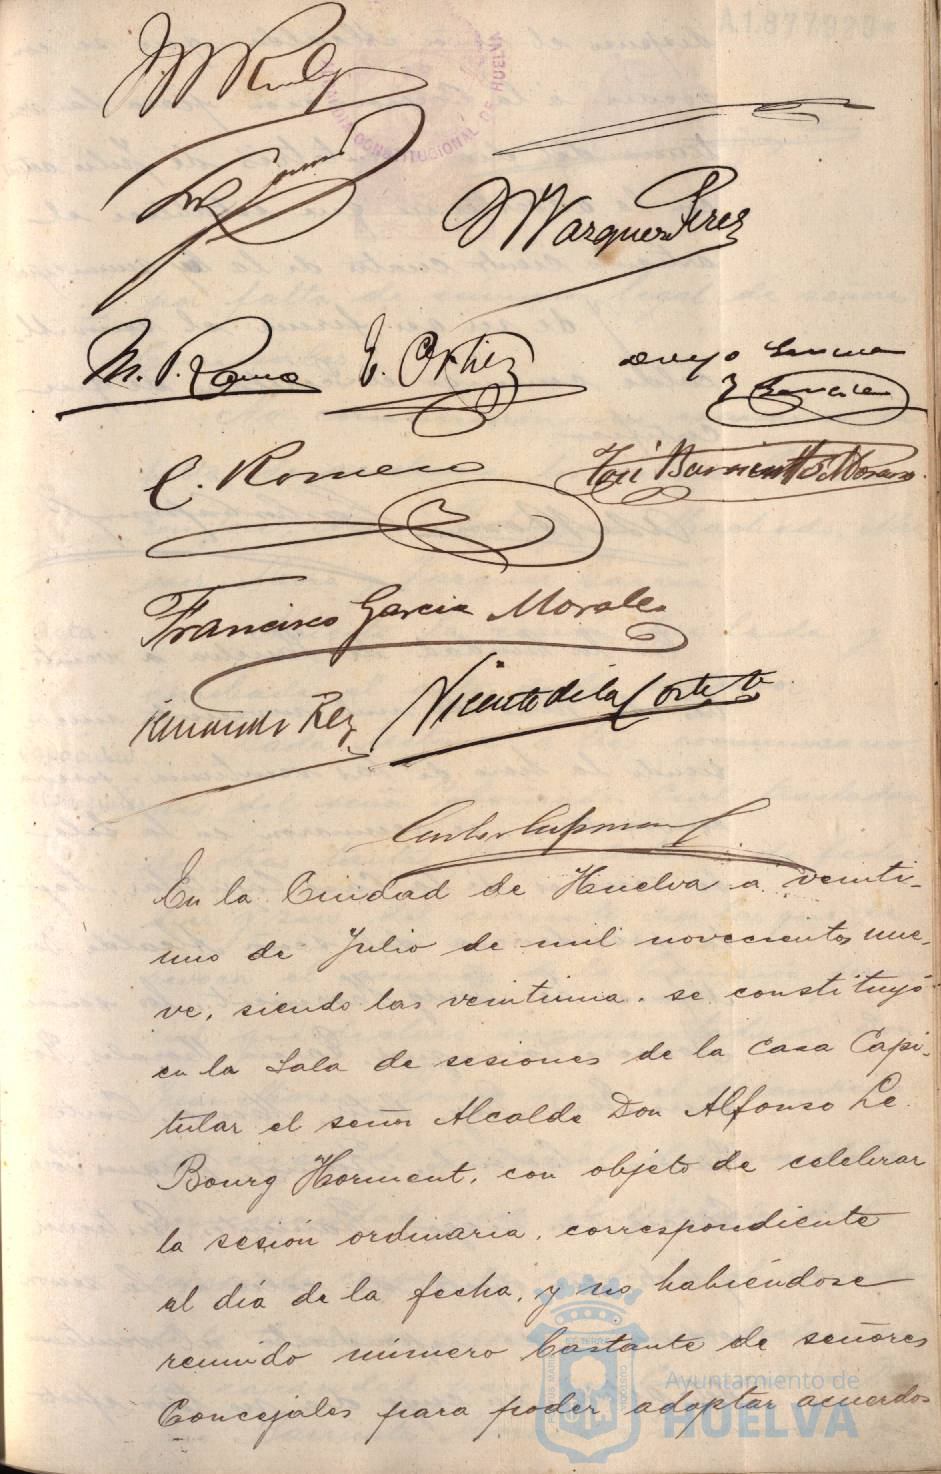 A1.877.928*
CONSTITUCIONAL DE HUELVA
M Vazquez Perez
M. P. Roma
E. Ortiz
C. Romero
José Barrientos Moreno
Francisco Garcia Morales
Fernando Rey
Vicente de la Corte
En la Ciudad de Huelva a veinti-
uno de Julio de mil novecientos nue-
ve, siendo las veintiuna, se constituyó
en la Sala de sesiones de la Casa Capi-
tular el señor Alcalde Don Alfonso Le
Bourg Horment, con objeto de celebrar
la sesión ordinaria, correspondiente
al día de la fecha, y no habiéndose
reunido número bastante de señores
Concejales para poder adoptar acuerdos
Ayuntamiento de
HUELVA